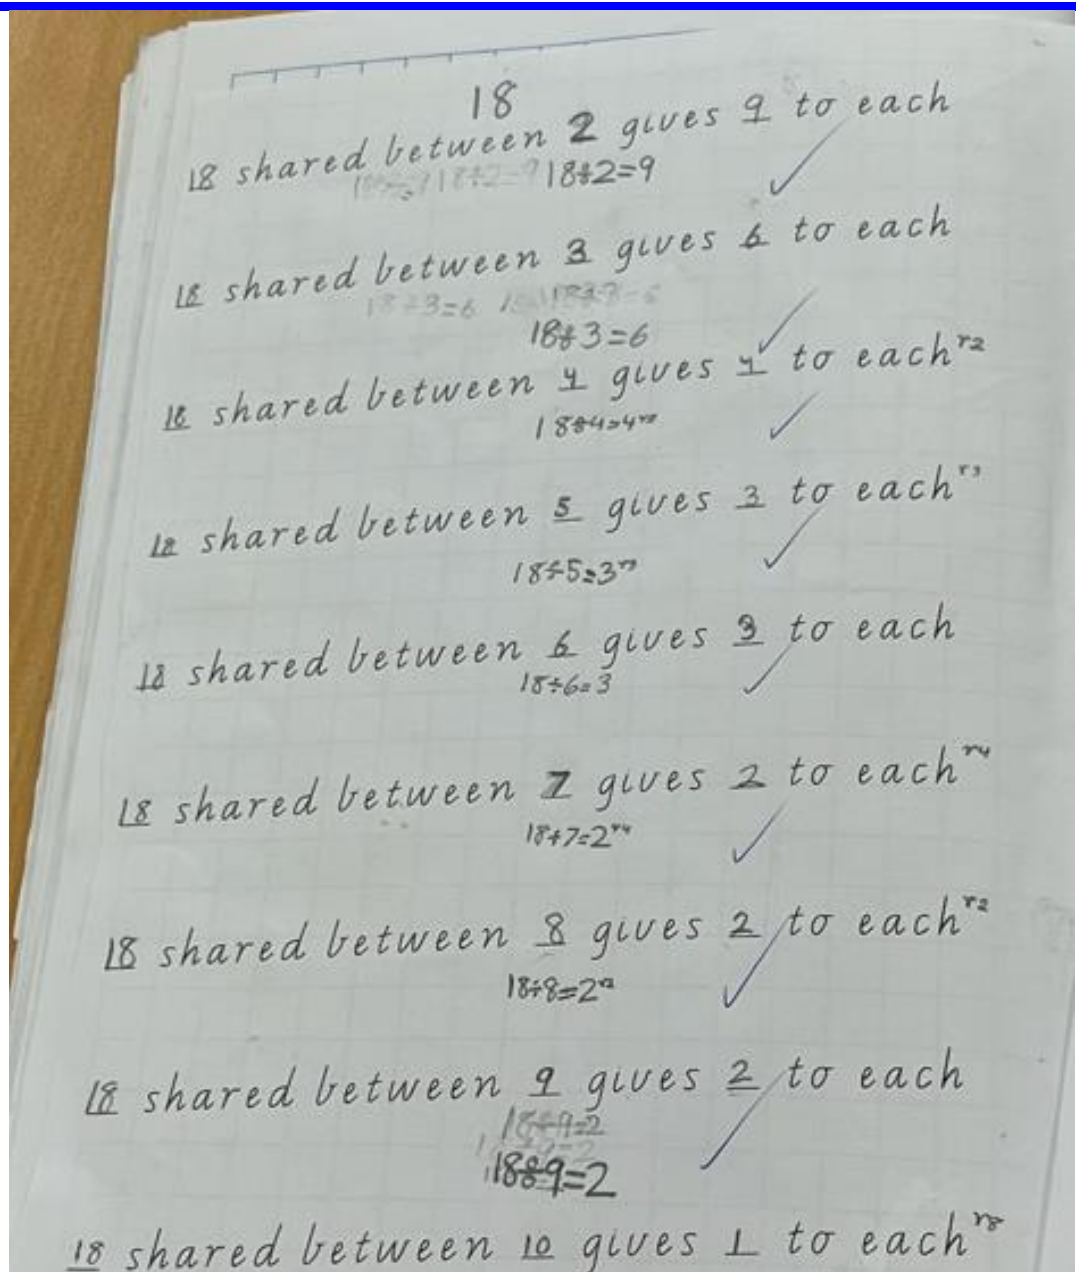 18
18 shared between 2 gives 9 to each
18÷2=9 18÷2=9
18 shared between 3 gives 6 to each
18÷3=6 18÷3=6
18÷3=6
18 shared between 4 gives 4 to each r2
18÷4=4 r2
18 shared between 5 gives 3 to each r3
18÷5=3 r3
18 shared between 6 gives 3 to each
18÷6=3
18 shared between 7 gives 2 to each r4
18÷7=2 r4
18 shared between 8 gives 2 to each r2
18÷8=2 r2
18 shared between 9 gives 2 to each
18÷9=2
18÷9=2
18 shared between 10 gives 1 to each r8